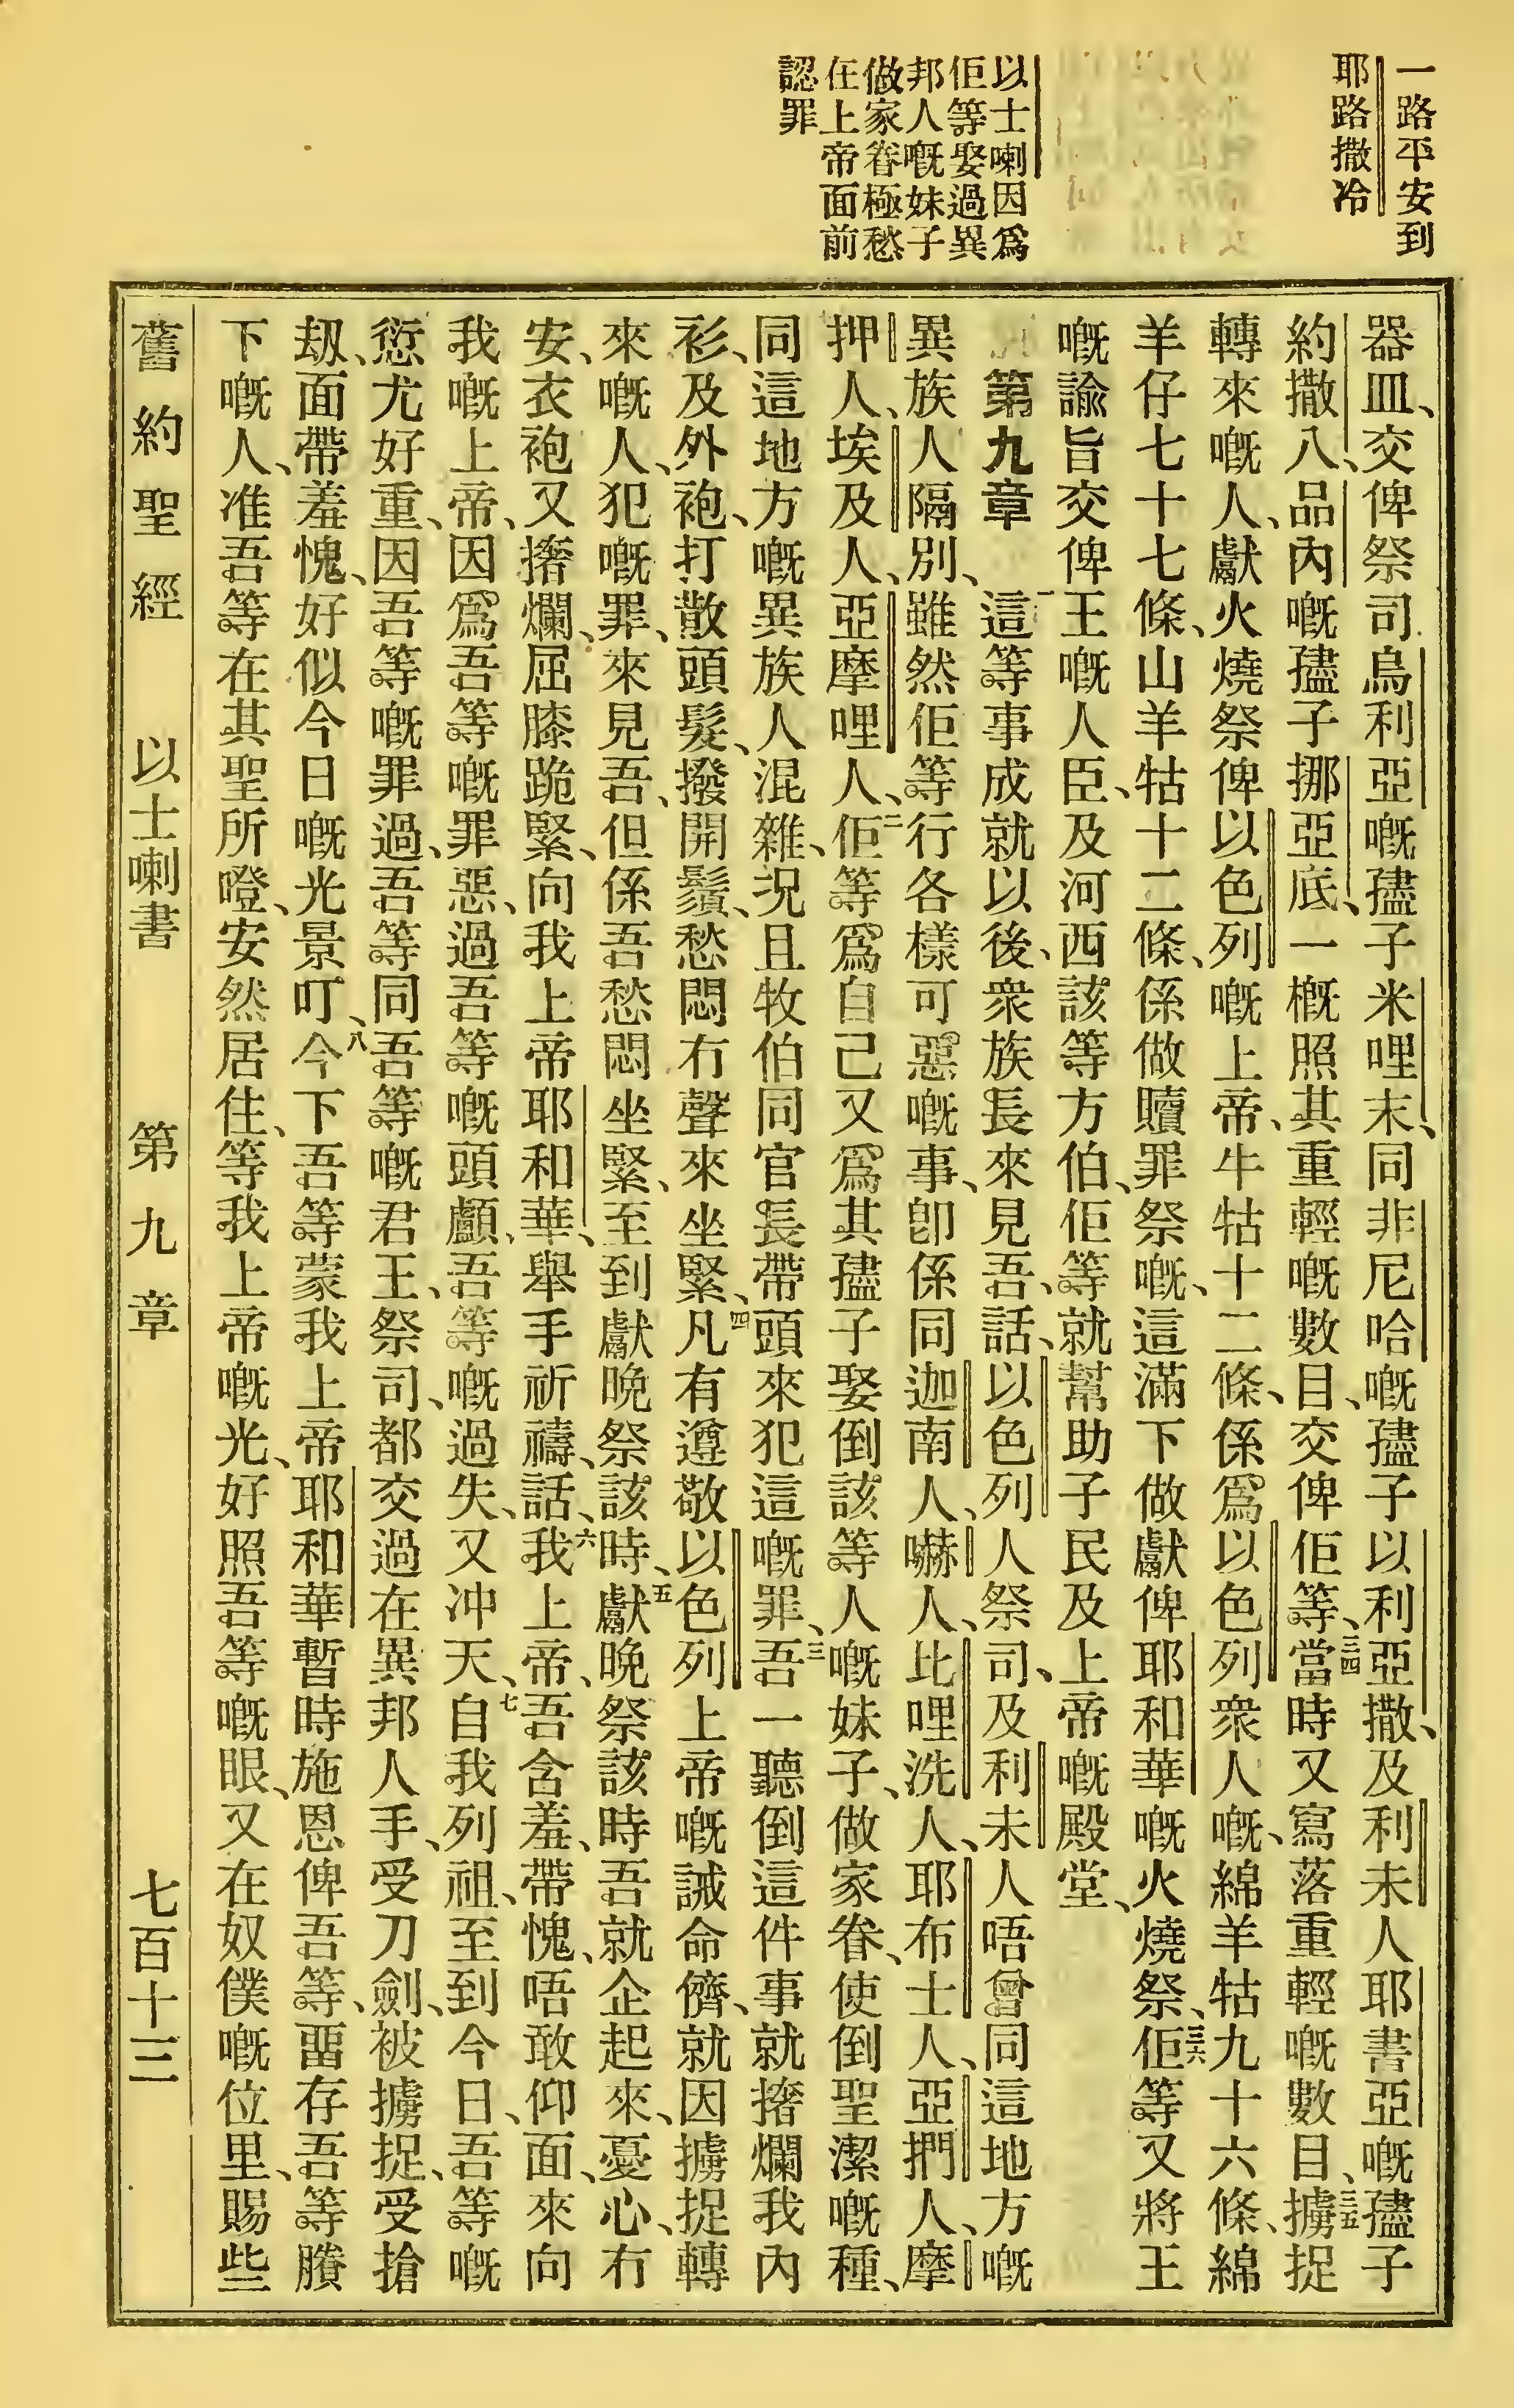 一路平安到
耶路撒冷
以士喇因爲
佢等娶過異
邦人嘅妹子
做家眷極愁
在上帝面前
認罪
器皿、交俾祭司烏利亞嘅孻子米哩末、同非尼哈嘅孻子以利亞撒、及利未人耶書亞嘅孻子
約撒八、品內嘅孻子挪亞底、一概照其重輕嘅數目、交俾佢等、三四當時又寫落重輕嘅數目、三五擄捉
轉來嘅人、獻火燒祭俾以色列嘅上帝、牛牯十二條、係爲以色列衆人嘅、綿羊牯九十六條、綿
羊仔七十七條、山羊牯十二條、係做贖罪祭嘅、這滿下做獻俾耶和華嘅火燒祭、三六佢等又將王
嘅諭旨交俾王嘅人臣、及河西該等方伯、佢等就幫助子民及上帝嘅殿堂、
第九章 一這等事成就以後、衆族長來見吾、話、以色列人祭司、及利未人唔曾同這地方嘅
異族人隔別、雖然佢等行各樣可惡嘅事、卽係同迦南人、嚇人、比哩洗人、耶布士人、亞捫人、摩
押人、埃及人、亞摩哩人、二佢等爲自己又爲其孻子娶倒該等人嘅妹子、做家眷、使倒聖潔嘅種、
同這地方嘅異族人混雜、況且牧伯同官長帶頭來犯這嘅罪、三吾一聽倒這件事就撦爛我內
衫、及外袍、打散頭髮、撥開鬚、愁悶冇聲來坐緊、四凡有遵敬以色列上帝嘅誡命儕、就因擄捉轉
來嘅人、犯嘅罪、來見吾、但係吾愁悶坐緊、至到獻晚祭該時、五獻晚祭該時吾就企起來、憂心、冇
安、衣袍又撦爛、屈膝跪緊、向我上帝耶和華、舉手祈禱、話、六我上帝、吾含羞、帶愧、唔敢仰面、來向
我嘅上帝、因爲吾等嘅罪惡、過吾等嘅頭顱、吾等嘅過失、又冲天、七自我列祖、至到今日、吾等嘅
愆尤好重、因吾等嘅罪過、吾等同吾等嘅君王、祭司、都交過在異邦人手、受刀劍、被擄捉、受搶
刼、面帶羞愧、好似今日嘅光景叮、八今下吾等蒙我上帝耶和華暫時施恩俾吾等、畱存吾等賸
下嘅人、准吾等在其聖所嶝、安然居住、等我上帝嘅光、好照吾等嘅眼、又在奴僕嘅位里、賜些
舊約聖經 以士喇書 第九章 七百十三